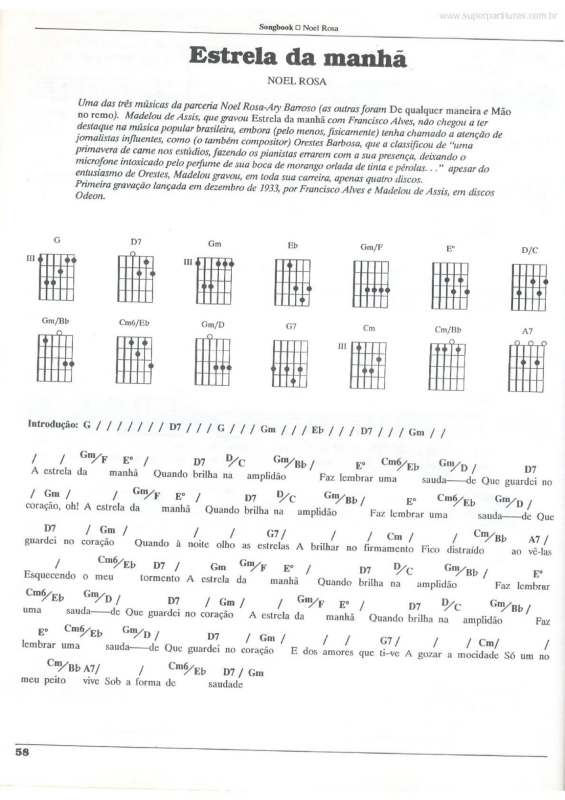 www.superpartituras.com.br
Songbook □ Noel Rosa
Estrela da manhã
NOEL ROSA
Uma das três músicas da parceria Noel Rosa-Ary Barroso (as outras foram De qualquer maneira e Mão
no remo). Madelou de Assis, que gravou Estrela da manhã com Francisco Alves, não chegou a ter
destaque na música popular brasileira, embora (pelo menos, fisicamente) tenha chamado a atenção de
jornalistas influentes, como (o também compositor) Orestes Barbosa, que a classificou de "uma
primavera de carne nos estúdios, fazendo os pianistas errarem com a sua presença, deixando o
microfone intoxicado pelo perfume de sua boca de morango orlada de tinta e pérolas. . ." apesar do
entusiasmo de Orestes, Madelou gravou, em toda sua carreira, apenas quatro discos.
Primeira gravação lançada em dezembro de 1933, por Francisco Alves e Madelou de Assis, em discos
Odeon.
G D7 Gm Eb Gm/F E° D/C
III III
Gm/Bb Cm6/Eb Gm/D G7 Cm Cm/Bb A7
III
Introdução: G / / / / / / / D7 / / / G / / / Gm / / / Eb / / / D7 / / / Gm / /
/ / Gm/F E° / D7 D/C Gm/Bb / E° Cm6/Eb Gm/D / D7
A estrela da manhã Quando brilha na amplidão Faz lembrar uma sauda—de Que guardei no
/ Gm / / Gm/F E° / D7 D/C Gm/Bb / E° Cm6/Eb Gm/D /
coração, oh! A estrela da manhã Quando brilha na amplidão Faz lembrar uma sauda—de Que
D7 / Gm / / / G7 / / Cm / / Cm/Bb A7 /
guardei no coração Quando à noite olho as estrelas A brilhar no firmamento Fico distraído ao vê-las
/ Cm6/Eb D7 / Gm Gm/F E° / D7 D/C Gm/Bb / E°
Esquecendo o meu tormento A estrela da manhã Quando brilha na amplidão Faz lembrar
Cm6/Eb Gm/D / D7 / Gm / / Gm/F E° / D7 D/C Gm/Bb /
uma sauda—de Que guardei no coração A estrela da manhã Quando brilha na amplidão Faz
E° Cm6/Eb Gm/D / D7 / Gm / / / G7 / / / Cm/ /
lembrar uma sauda—de Que guardei no coração E dos amores que ti-ve A gozar a mocidade Só um no
Cm/Bb A7/ / Cm6/Eb D7 / Gm
meu peito vive Sob a forma de saudade
58